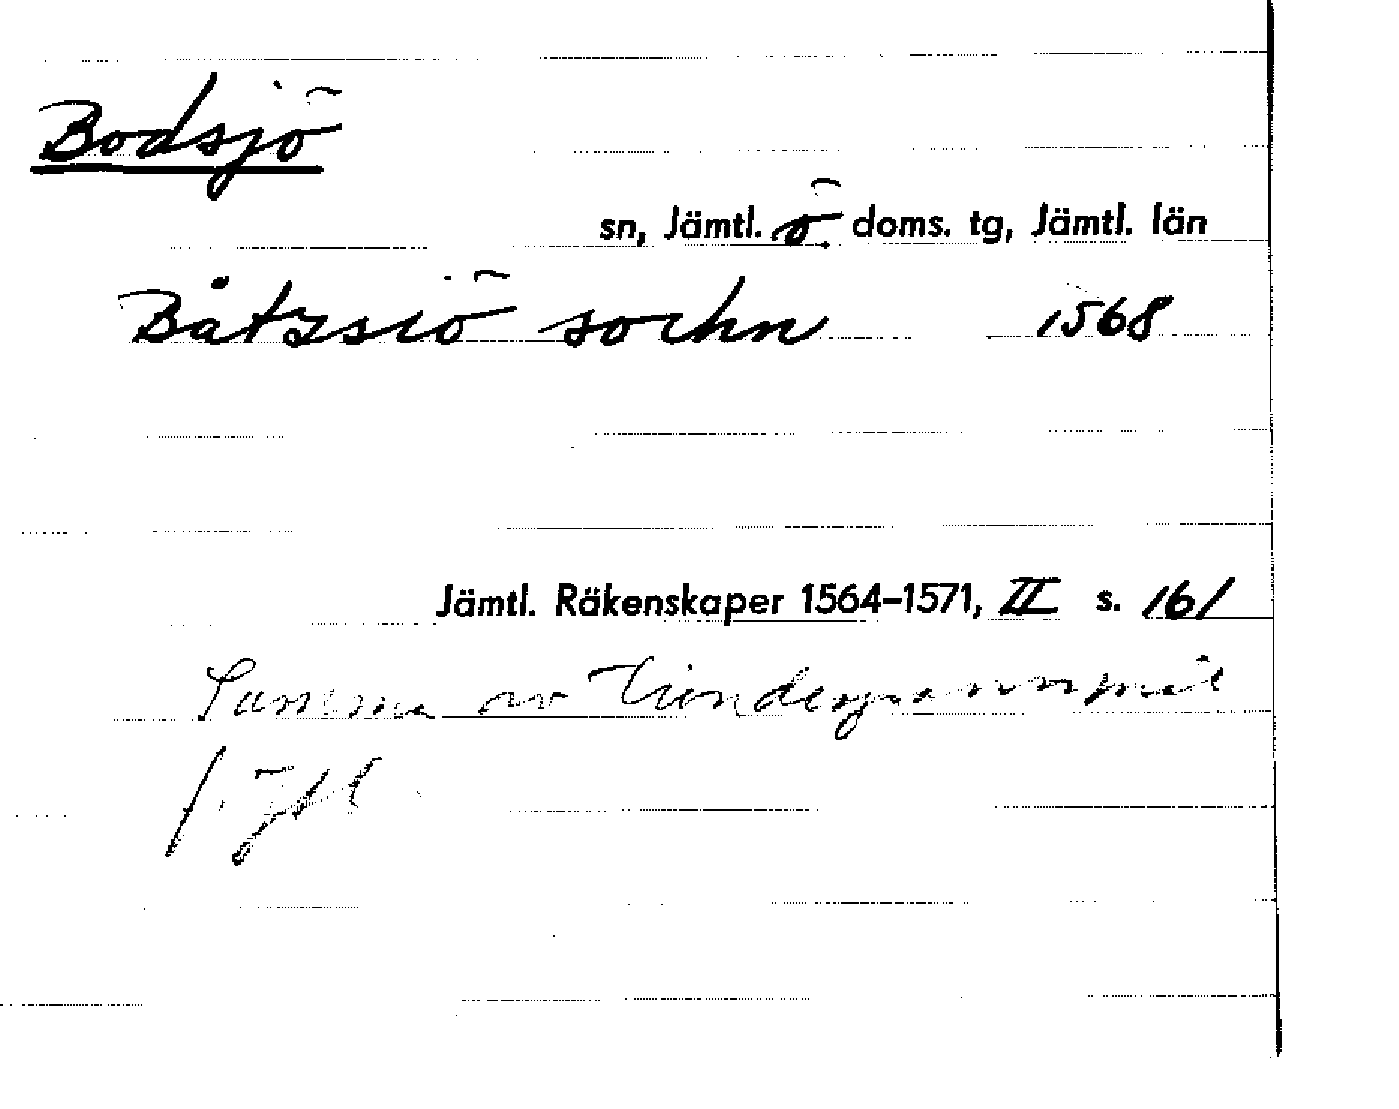 Bodsjö
sn, Jämtl. ö doms. tg, Jämtl. län
Båtzsiö sochn 1568
Jämtl. Räkenskaper 1564–1571, II s. 161
Summa av
f. Jtl